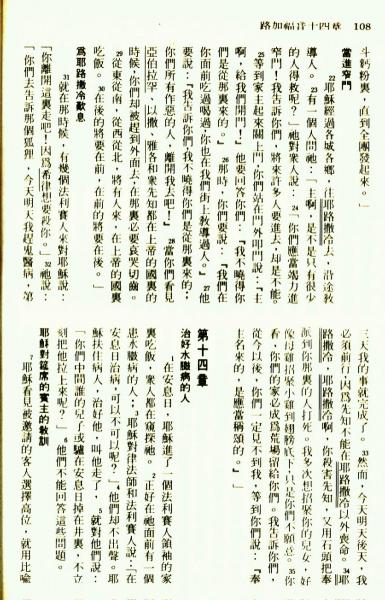 路加福音十四章 108
斗麪粉裏,直到全團發起來。」
當進窄門
22耶穌經過各城各鄉,往耶路撒冷去,沿途教
導人。23有一個人問祂:「主啊,是不是只有很少
的人得救呢?」祂對衆人說:24「你們應當竭力進
窄門!我告訴你們,將來許多人要進去,却是不能。
25等到家主起來關上門,你們站在門外叩門說:『主
啊,給我們開門!』他要回答你們:『我不曉得你
們是從那裏來的。』26那時,你們要說:『我們在
你面前吃過喝過,你也在我們街上教導過人。』27他
要說:『我告訴你們,我不曉得你們是從那裏來的;
你們所有作惡的人,離開我去吧!』28當你們看見
亞伯拉罕、以撒、雅各和衆先知都在上帝的國裏的
時候,你們却被趕到外面去,在那裏必要哀哭切齒。
29從東從南,從西從北,將有人來,在上帝的國裏
吃飯。30在後的將要在前,在前的將要在後。」
爲耶路撒冷歎息
31就在那時候,有幾個法利賽人來對耶穌說:
「你離開這裏走吧!因爲希律想要殺你。」32祂說:
「你們去告訴那個狐狸,『今天明天我趕鬼醫病,第
三天我的事就完成了。』33然而,今天明天後天,我
必須前行;因爲先知不能在耶路撒冷以外喪命。34耶
路撒冷,耶路撒冷啊,你殺害先知,又用石頭把奉
派到你那裏的人打死。我多次想招聚你的兒女,好
像母雞招聚小雞到翅膀底下,只是你們不願意。35你
看,你們的家必成爲荒場留給你們。我告訴你們,
從今以後,你們一定見不到我,等到你們說:『奉
主名來的,是應當稱頌的。』」
第十四章
治好水臌病的人
1在安息日,耶穌進了一個法利賽人領袖的家
裏吃飯,衆人都在窺探祂。2正好在祂面前有一個
患水臌病的人,3耶穌對律法師和法利賽人說:「在
安息日治病,可以不可以呢?」4他們却不出聲。耶
穌扶住病人,治好他,叫他走了,5就對他們說:
「你們中間誰的兒子或驢在安息日掉在井裏,不立
刻把他拉上來呢?」6他們不能回答這些問題。
耶穌對筵席的賓主的教訓
7耶穌看見被邀請的客人選擇高位,就用比喻